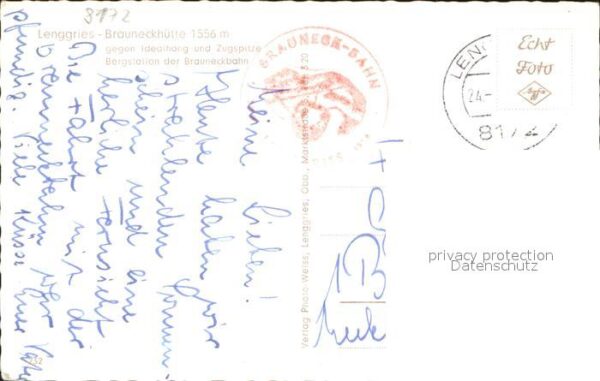 8172
Lenggries - Brauneckhütte 1556 m
gegen Idealhang und Zugspitze
Bergstation der Brauneckbahn
BRAUNECK-BAHN
LENG
24.-
8172
Echt
Foto
Agfa
Meine Lieben!
Heute haben wir
strahlenden Sonnen-
schein und eine
herrliche Fernsicht
Die Fahrt mit der
Brauneckbahn war
pfundig. Viele Küsse Euer Vater
Verlag Photo Weiss, Lenggries, Obb., Marktstraße
privacy protection
Datenschutz